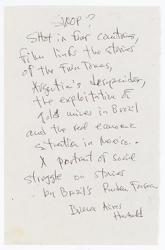 SHOT IN four countries,
film links the stories
of the Twin Towers,
Argentina's
the exploitation of
Gold mines in Brazil
and the real economic
situation in
A portrait of social
struggle on stories
by Brazil's Ruben Fonseca
Buenos Aires
Herald